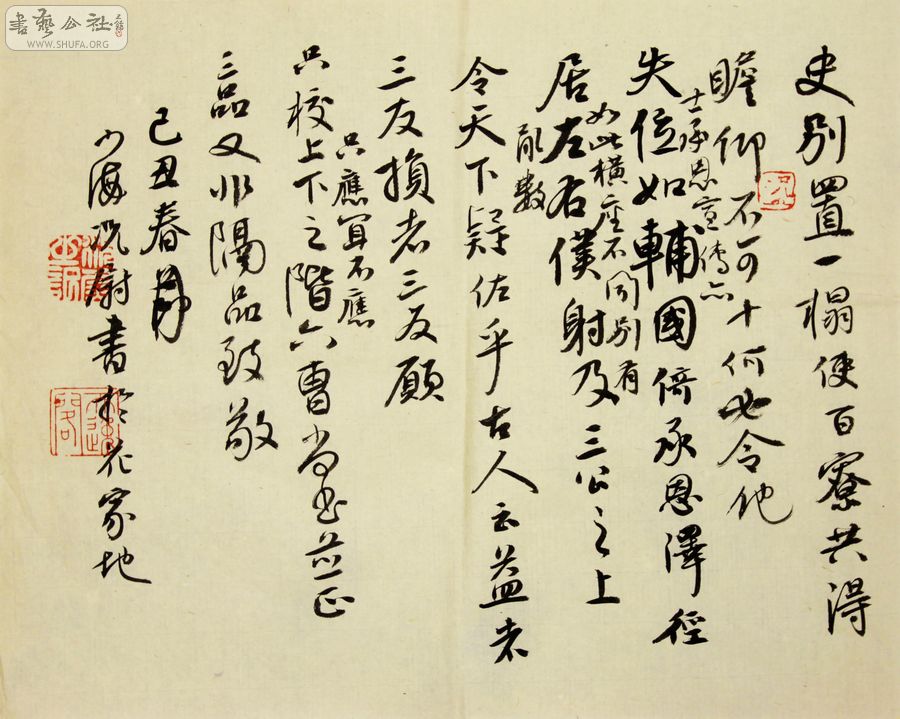 書藝公社
WWW.SHUFA.ORG
史别置一榻使百寮共得
瞻仰不可十何必令他
士承恩宣傳亦
失位如輔國倚承恩澤徑
如此横座不聞别有
居左右僕射及三公之上
數
令天下疑佐乎古人云益者
三友損者三友願
只應冝不應
只校上下之階六曹尚书並正
三品又非隔品致敬
己丑春月
少海况尉書於花家地